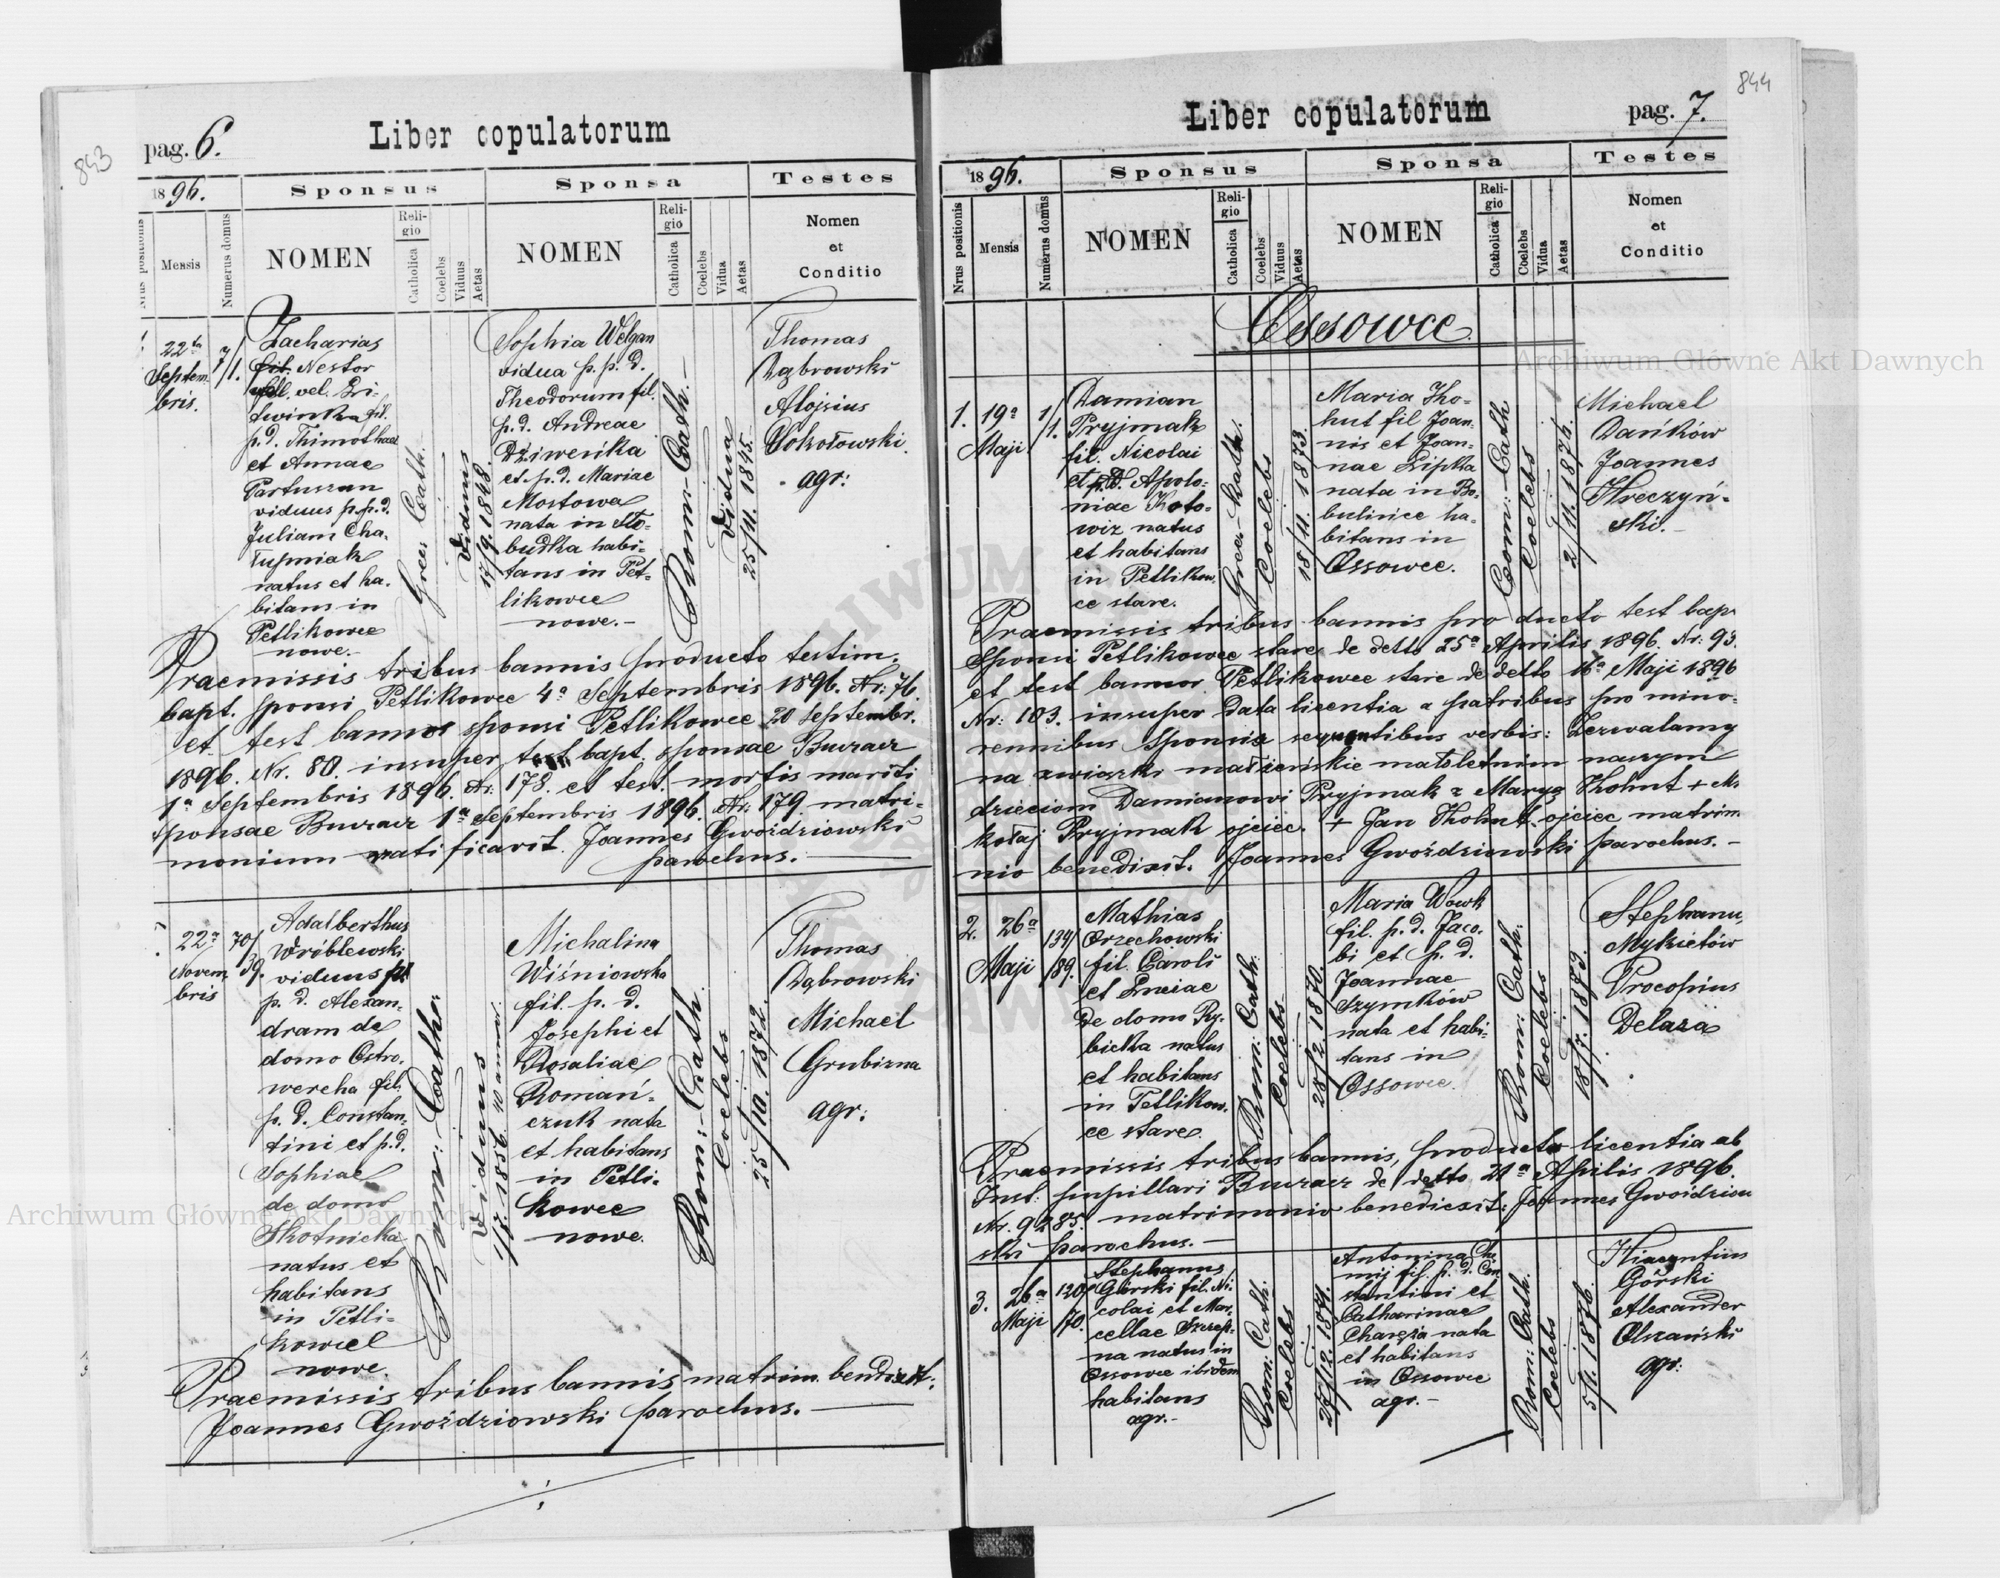 843
pag. 6.
Liber copulatorum
1896.
Sponsus
Sponsa
Testes
Nrus positionis
Mensis
Numerus domus
NOMEN
Religio
Catholica
Coelebs
Viduus
Aetas
NOMEN
Religio
Catholica
Coelebs
Vidua
Aetas
Nomen
et
Conditio
22
Septem
bris.
7/1.
Zacharias
fil. Nestor
vel.
p.d. Thimothae
et Annae
Partuszan
viduus p.p.d.
Juliam Cha-
łupniak
natus et ha-
bitans in
Petlikowce
nowe.
Grec: Cath.
Viduus
17/9. 1848.
Sophia Welgan
vidua p.p.d.
Theodorum fil.
p.d. Andreae
Dziweńka
et p.d. Mariae
Mostowa
nata in Sło-
budka habi-
tans in Pet-
likowce
nowe.-
Rom: Cath.-
Vidua
25/11. 1845.
Thomas
Dąbrowski
Alojsius
Sokołowski.
agr:
Praemissis tribus bannis producto testim.
bapt. sponsi Petlikowce 4ª Septembris 1896. Nr: 76.
et test bannor sponsi Petlikowce 20 Septembr.
1896. Nr. 80. insuper test bapt. sponsae Buczacz
1ª Septembris 1896. Nr: 178. et test. mortis mariti
sponsae Buczacz 1ª Septembris 1896. Nr: 179 matri-
monium ratificavit. Joannes Gwoździowski
parochus.
22ª
Novem
bris
70/
39.
Adalberthus
Wróblewski
viduus
p. d. Alexan-
dram de
domo Ostro-
wercha fil.
p. d. Constan-
tini et p.d.
Sophiae
de domo
Skotnicka
natus et
habitans
in Petli-
kowce
nowe.
Rom: Cath:
Viduus
1856. 40 annor.
Michalina
Wiśniowska
fil. p. d.
Josephi et
Rosaliae
Romań-
czuk nata
et habitans
in Petli-
kowce
nowe.
Rom: Cath.
Coelebs
25/10. 1872.
Thomas
Dąbrowski
Michael
Grubizna
agr:
Praemissis tribus bannis matrim. bendixit:
Joannes Gwoździowski parochus.
844
Liber copulatorum
pag. 7.
1896.
Sponsus
Sponsa
Testes
Nrus positionis
Mensis
Numerus domus
NOMEN
Religio
Catholica
Coelebs
Viduus
Aetas
NOMEN
Religio
Catholica
Coelebs
Vidua
Aetas
Nomen
et
Conditio
Ossowce
1.
19ª
Maji
1/1.
Damian
Pryjmak
fil. Nicolai
et p.d. Apolo-
niae Koto-
wiz natus
et habitans
in Petlikow
ce stare.
Grec: Kath.
Coelebs
18/11. 1873.
Maria Tho-
hut fil Joan-
nis et Joan-
nae Lipka
nata in Bo-
bulińce ha-
bitans in
Ossowce.
Rom: Cath
Coelebs
2/11. 1876.
Michael
Dańków
Joannes
Kreczyń-
ski.-
Praemissis tribus bannis producto test bap.
sponsi Petlikowce stare de detto 25ª Aprilis 1896. Nr: 93.
et test bannor Petlikowce stare de detto 16ª Maji 1896
Nr: 103. insuper data licentia a patribus pro mino-
rennibus sponsis sequentibus verbis: Zezwalamy
na związki małżeńskie małoletnim naszym
dzieciom Damianowi Pryjmak z Maryą Thohut + Mi
kołaj Pryjmak ojciec. + Jan Thohut ojciec matrim
nio benedixit. Joannes Gwoździowski parochus.-
2.
26ª
Maji
134/
89.
Mathias
Orzechowski
fil. Caroli
et Luciae
de domo Ry-
bicka natus
et habitans
in Petlikow-
ce stare.
Rom: Cath.
Coelebs
28/2. 1870.
Maria Wowk
fil. p. d. Jaco-
bi et p. d.
Joannae
Szymków
nata et habi-
tans in
Ossowce.
Rom: Cath.
Coelebs
18/7. 1873.
Stephanus
Mykietów
Procopius
Delaza
Praemissis tribus bannis, producta licentia ab
Inst: pupillari Buczacz de detto 21ª Aprilis 1896.
Nr. 9285. matrimonio benedixit: Joannes Gwoździow
ski parochus.-
3.
26ª
Maji
120/
70.
Stephanus
Górski fil. Ni-
colai et Mar-
cellae Szczep-
na natus in
Ossowce ibidem
habitans
agr.-
Rom: Cath:
Coelebs
Antonina
fil. p. d. Con
stantini et
Catharinae
nata
et habitans
in Ossowce
agr.-
Rom: Cath.
Coelebs
5/1. 1876.
Hiacynthus
Górski
Alexander
Olszański
agr:
Archiwum Główne Akt Dawnych
Archiwum Główne Akt Dawnych